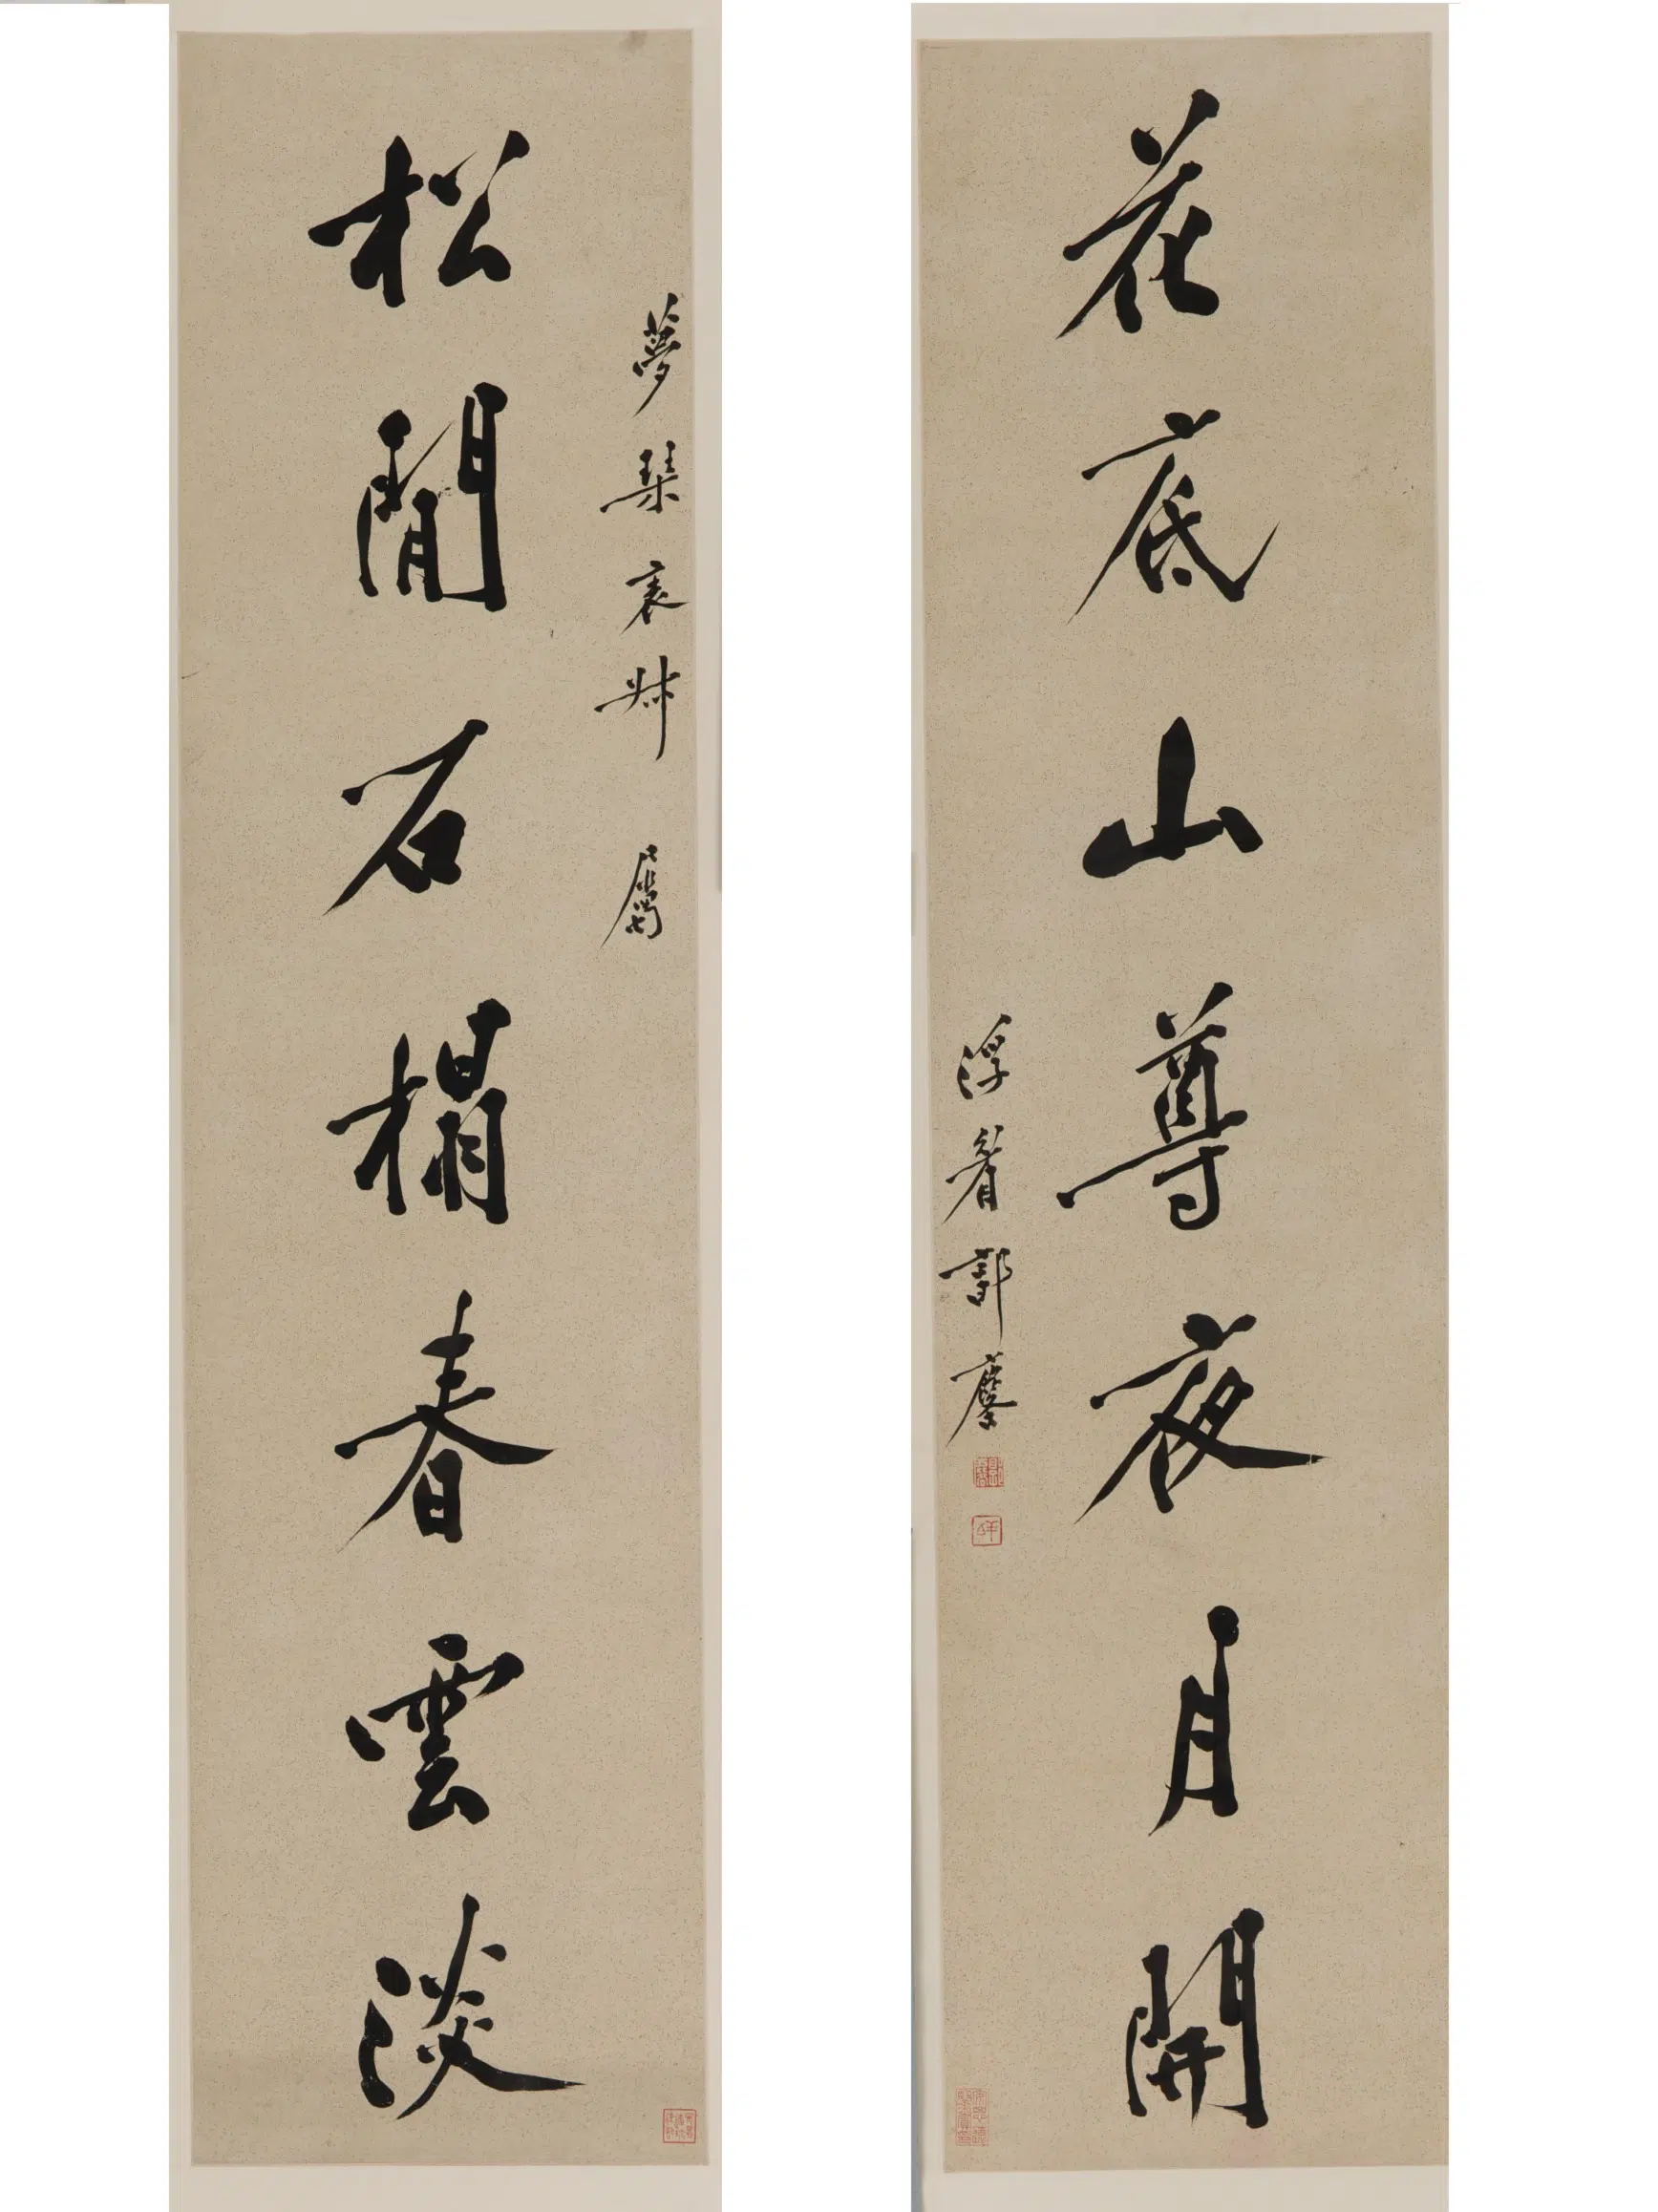 松閒石榻春雲淡
夢琹表姊屬
花底山尊夜月開
浮眉郭麐